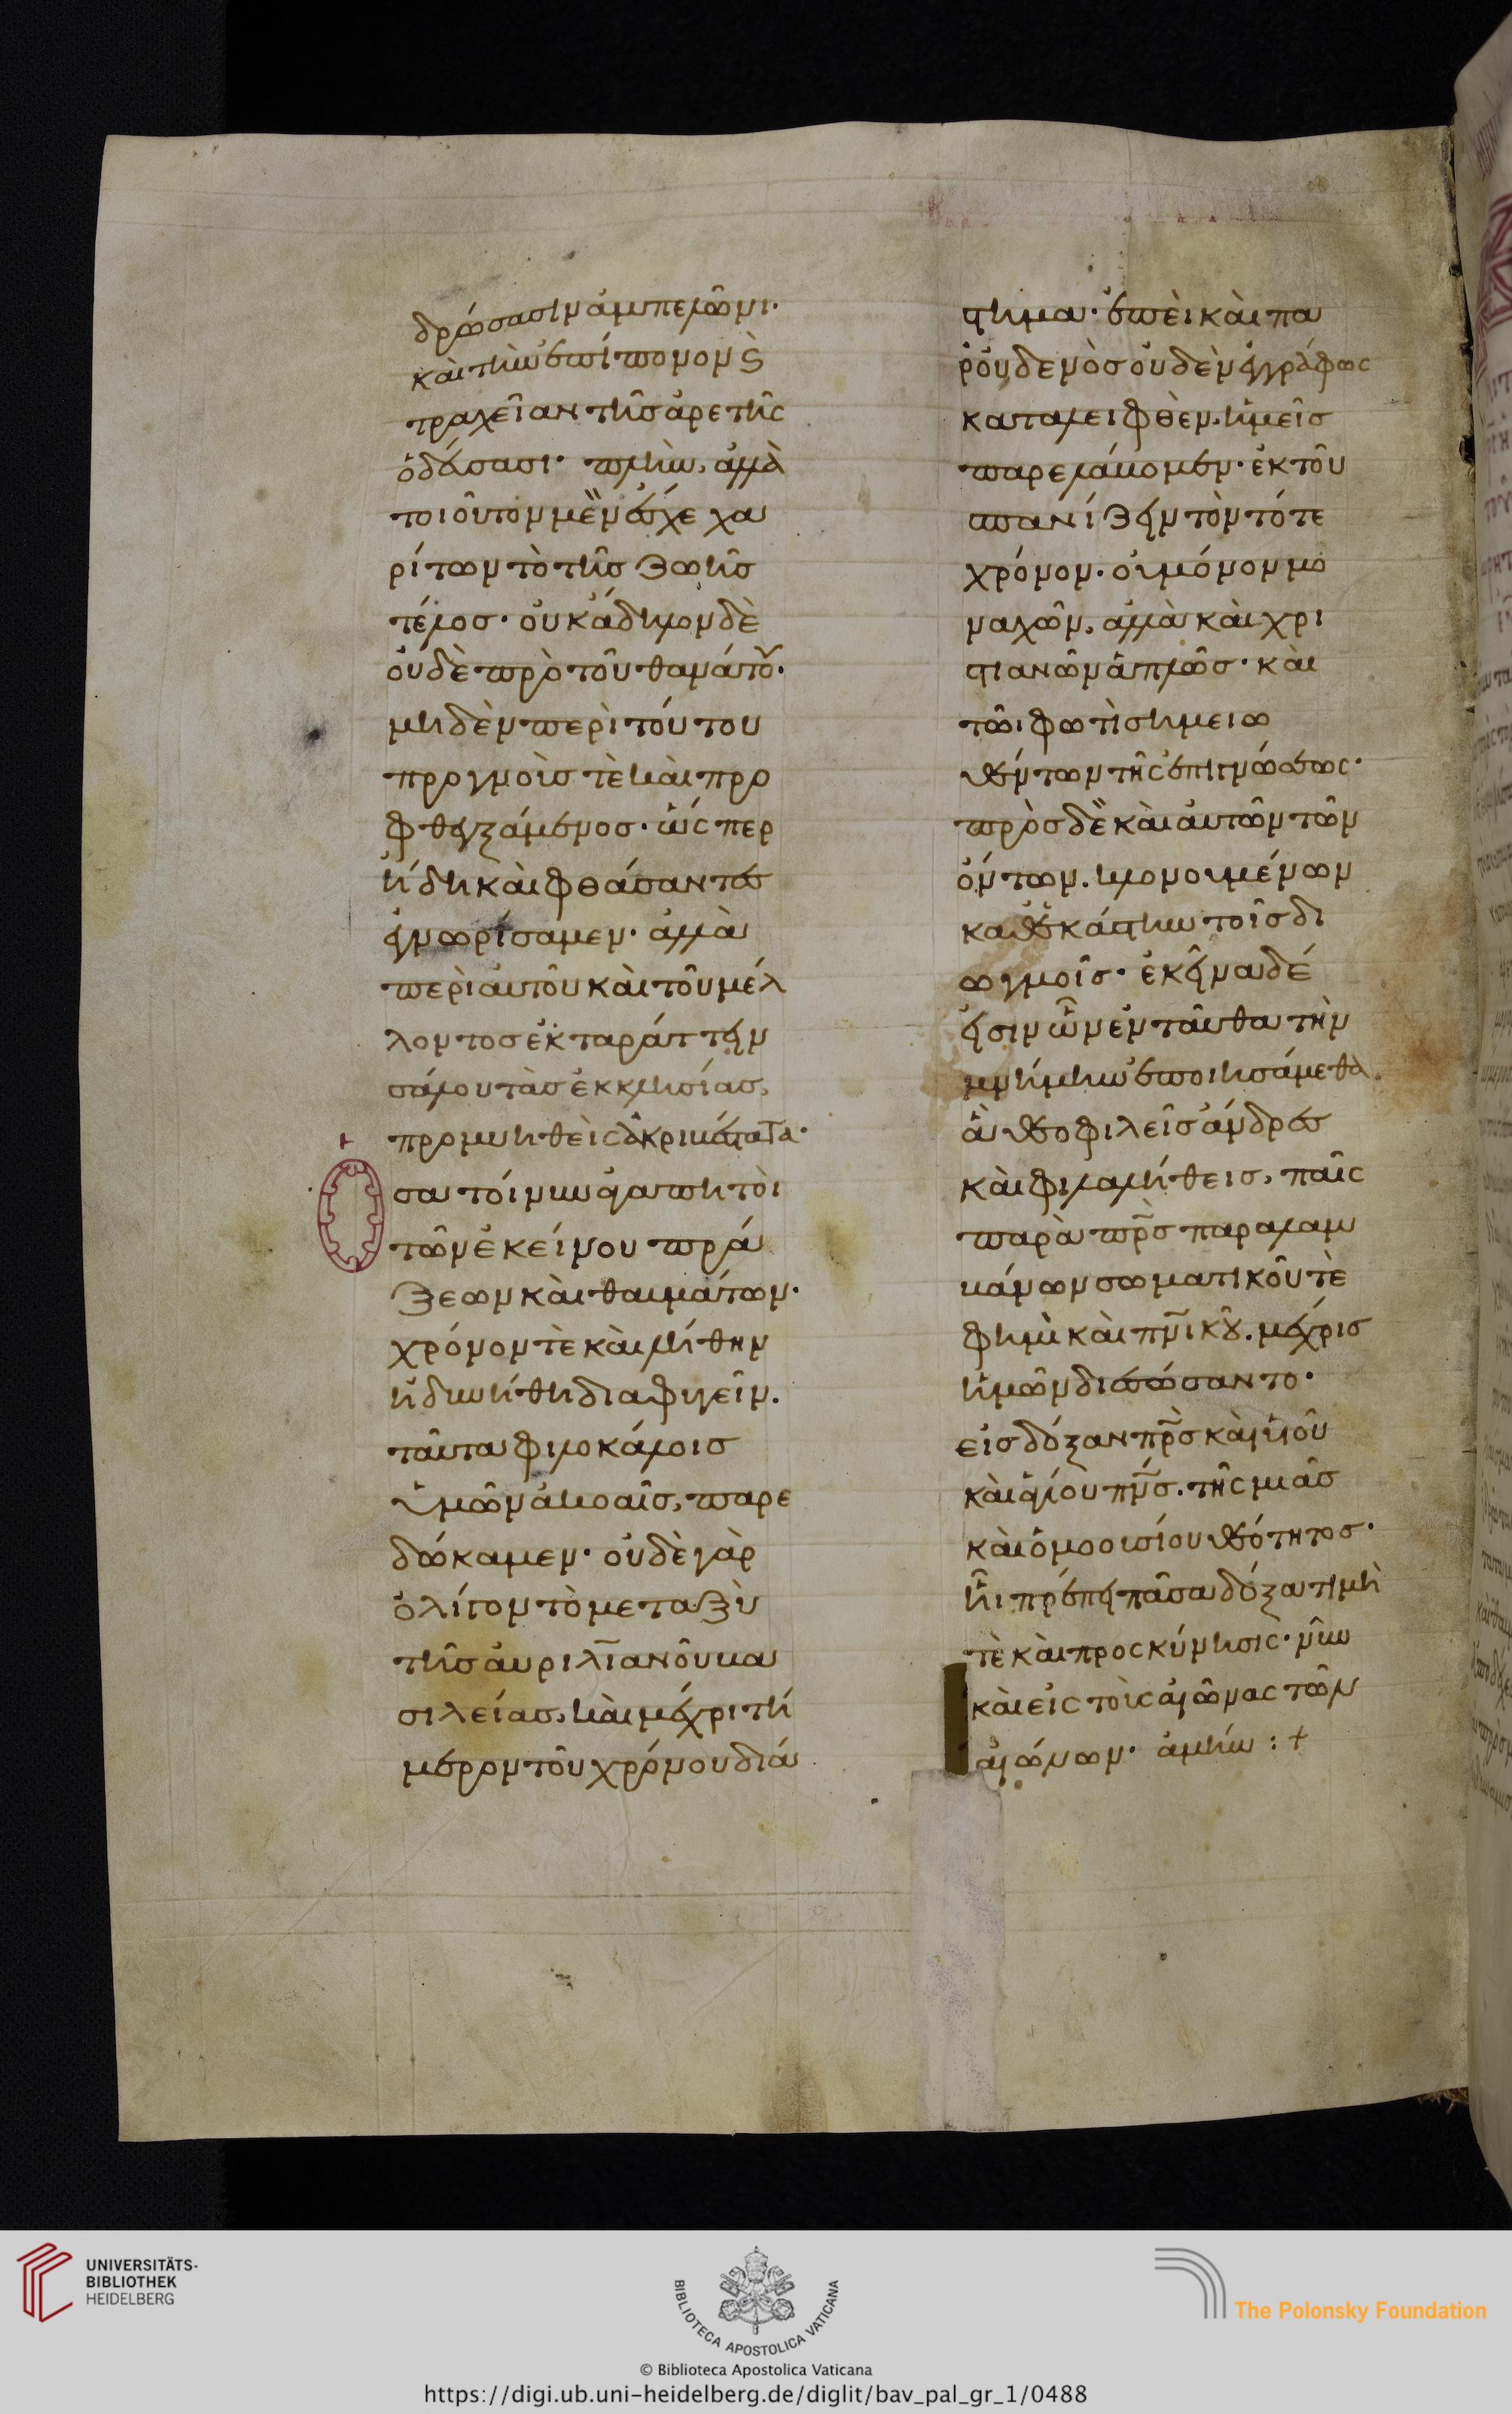 δρώσασιν ἀμπελῶνι·
καὶ τὴν ἐπίπονον ϗ
τραχεῖαν τῆς ἀρετῆς
ὁδεύσασι· πλὴν, ἀλλὰ
τοιοῦτον μὲν ἔσχε χα
ρίτων τὸ τῆς ζωῆς
τέλος· οὐκ ἄδηλον δὲ
οὐδὲ πρὸ τοῦ θανάτου·
μηδὲν περὶ τούτου
προγνοὺς τὲ καὶ προ
φθεγξάμενος· ὥς περ
ἤδη καὶ φθάσαντες
ἐγνωρίσαμεν· ἀλλὰ
περὶ αὐτοῦ καὶ τοῦ μέλ
λοντος ἐκταράττειν
σάλου τὰς ἐκκλησίας,
προμυηθεὶς ἀκριβέστατα·
σα τοίνυν ἀγαπητοὶ
τῶν ἐκείνου πρά
ξεων καὶ θαυμάτων·
χρόνον τὲ καὶ λήθην
ἠδυνήθη διαφυγεῖν.
ταῦτα φιλοκάλοις
ὑμῶν ἀκοαῖς, παρε
δώκαμεν· οὐδὲ γὰρ
ὀλίγον τὸ μεταξὺ
τῆς αὐριλιανοῦ βα
σιλείας, καὶ μέχρι τή
μερον τοῦ χρόνου διά
στημα· ἐπεὶ καὶ πα
ρ' οὐδενὸς οὐδὲν ἐγγράφως
καταλειφθὲν, ἡμεῖς
παρελάβομεν· ἐκ τοῦ
σπανίζειν τὸν τότε
χρόνον· οὐ μόνον μο
ναχῶν, ἀλλὰ καὶ χρι
στιανῶν ἁπλῶς· καὶ
τῶι φωτὶ σημειω
θέντων τῆς ἐπιγνώσεως·
πρὸς δὲ καὶ αὐτῶν τῶν
ὄντων. κλονουμένων
καθεκάστην τοῖς δι
ωγμοῖς· ἐκεῖνα δέ
εἰσιν ὧν ἐνταῦθα τὴν
μνήμην ἐποιησάμεθα,
ἃ θεοφιλεῖς ἄνδρες
καὶ φιλαλήθεις, παῖς
παρὰ πρ̅ς παραλαμ
βάνων σωματικοῦ τὲ
φημὶ καὶ πν̅ικοῦ. μέχρις
ἡμῶν διεσώσαντο·
εἰς δόξαν πρ̅ς καὶ υἱοῦ
καὶ ἁγίου πν̅ς. τῆς μιᾶς
καὶ ὁμοουσίου θεότητος·
ἧι πρέπει πᾶσα δόξα τιμὴ
τὲ καὶ προσκύνησις· νῦν
καὶ εἰς τοὺς αἰῶνας τῶν
αἰώνων· ἀμήν : +
UNIVERSITÄTS-
BIBLIOTHEK
HEIDELBERG
BIBLIOTECA APOSTOLICA VATICANA
The Polonsky Foundation
© Biblioteca Apostolica Vaticana
https://digi.ub.uni-heidelberg.de/diglit/bav_pal_gr_1/0488